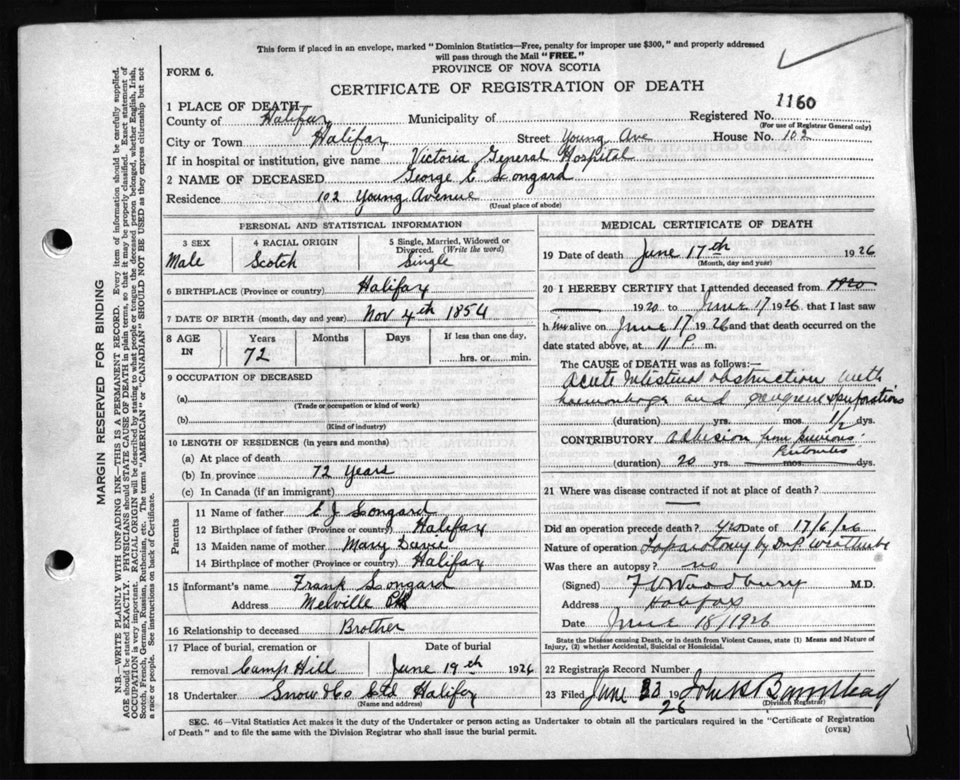 This form if placed in an envelope, marked "Dominion Statistics—Free, penalty for improper use $300," and properly addressed
will pass through the Mail "FREE."
FORM 6.
PROVINCE OF NOVA SCOTIA
CERTIFICATE OF REGISTRATION OF DEATH
1 PLACE OF DEATH
County of Halifax Municipality of Registered No. 1160
(For use of Registrar General only)
City or Town Halifax Street Young Ave House No. 102
If in hospital or institution, give name Victoria General Hospital
2 NAME OF DECEASED George E Longard
Residence 102 Young Avenue
(Usual place of abode)
PERSONAL AND STATISTICAL INFORMATION
3 SEX 4 RACIAL ORIGIN 5 Single, Married, Widowed or
Divorced. (Write the word)
Male Scotch Single
6 BIRTHPLACE (Province or country) Halifax
7 DATE OF BIRTH (month, day and year) Nov 4th 1854
8 AGE IN Years Months Days If less than one day,
72 hrs. or min.
9 OCCUPATION OF DECEASED
(a)
(Trade or occupation or kind of work)
(b)
(Kind of industry)
10 LENGTH OF RESIDENCE (in years and months)
(a) At place of death
(b) In province 72 Years
(c) In Canada (if an immigrant)
Parents
11 Name of father E J Longard
12 Birthplace of father (Province or country) Halifax
13 Maiden name of mother Mary Davie
14 Birthplace of mother (Province or country) Halifax
15 Informant's name Frank Longard
Address Melville
16 Relationship to deceased Brother
17 Place of burial, cremation or Date of burial
removal Camp Hill June 19th 1926
18 Undertaker Snow & Co Ltd Halifax
(Name and address)
MEDICAL CERTIFICATE OF DEATH
19 Date of death June 17th 1926
(Month, day and year)
20 I HEREBY CERTIFY that I attended deceased from 1920
1920 to June 17 1926 that I last saw
h im alive on June 17 1926 and that death occurred on
date stated above, at 11 P. m.
The CAUSE OF DEATH was as follows:—
Acute Intestinal obstruction with
haemorrhage and gangrene & perforations
(duration) yrs. mos. 1/2 dys.
CONTRIBUTORY adhesion from previous
(duration) 20 yrs. mos. dys.
21 Where was disease contracted if not at place of death?
Did an operation precede death? yes Date of 17/6/26
Nature of operation Laparotomy by
Was there an autopsy? no
(Signed) F V Woodbury M.D.
Address Halifax
Date June 18/1926
State the Disease causing Death, or in death from Violent Causes, state (1) Means and Nature of
Injury, (2) whether Accidental, Suicidal or Homicidal.
22 Registrar's Record Number
23 Filed June 19 26
(Division Registrar)
SEC. 46—Vital Statistics Act makes it the duty of the Undertaker or person acting as Undertaker to obtain all the particulars required in the "Certificate of Registration
of Death" and to file the same with the Division Registrar who shall issue the burial permit.
(OVER)
MARGIN RESERVED FOR BINDING
N.B.—WRITE PLAINLY WITH UNFADING INK—THIS IS A PERMANENT RECORD. Every item of information should be carefully supplied.
AGE should be stated EXACTLY. PHYSICIANS should STATE CAUSE OF DEATH in plain terms, so that it may be properly classified. Exact statement of
OCCUPATION is very important. RACIAL ORIGIN will be described by stating to what people or tongue the deceased person belonged, whether English, Irish,
Scotch, French, German, Russian, Ruthenian, etc. The terms "AMERICAN" or "CANADIAN" SHOULD NOT BE USED as they express citizenship but not
a race or people. See instructions on back of Certificate.